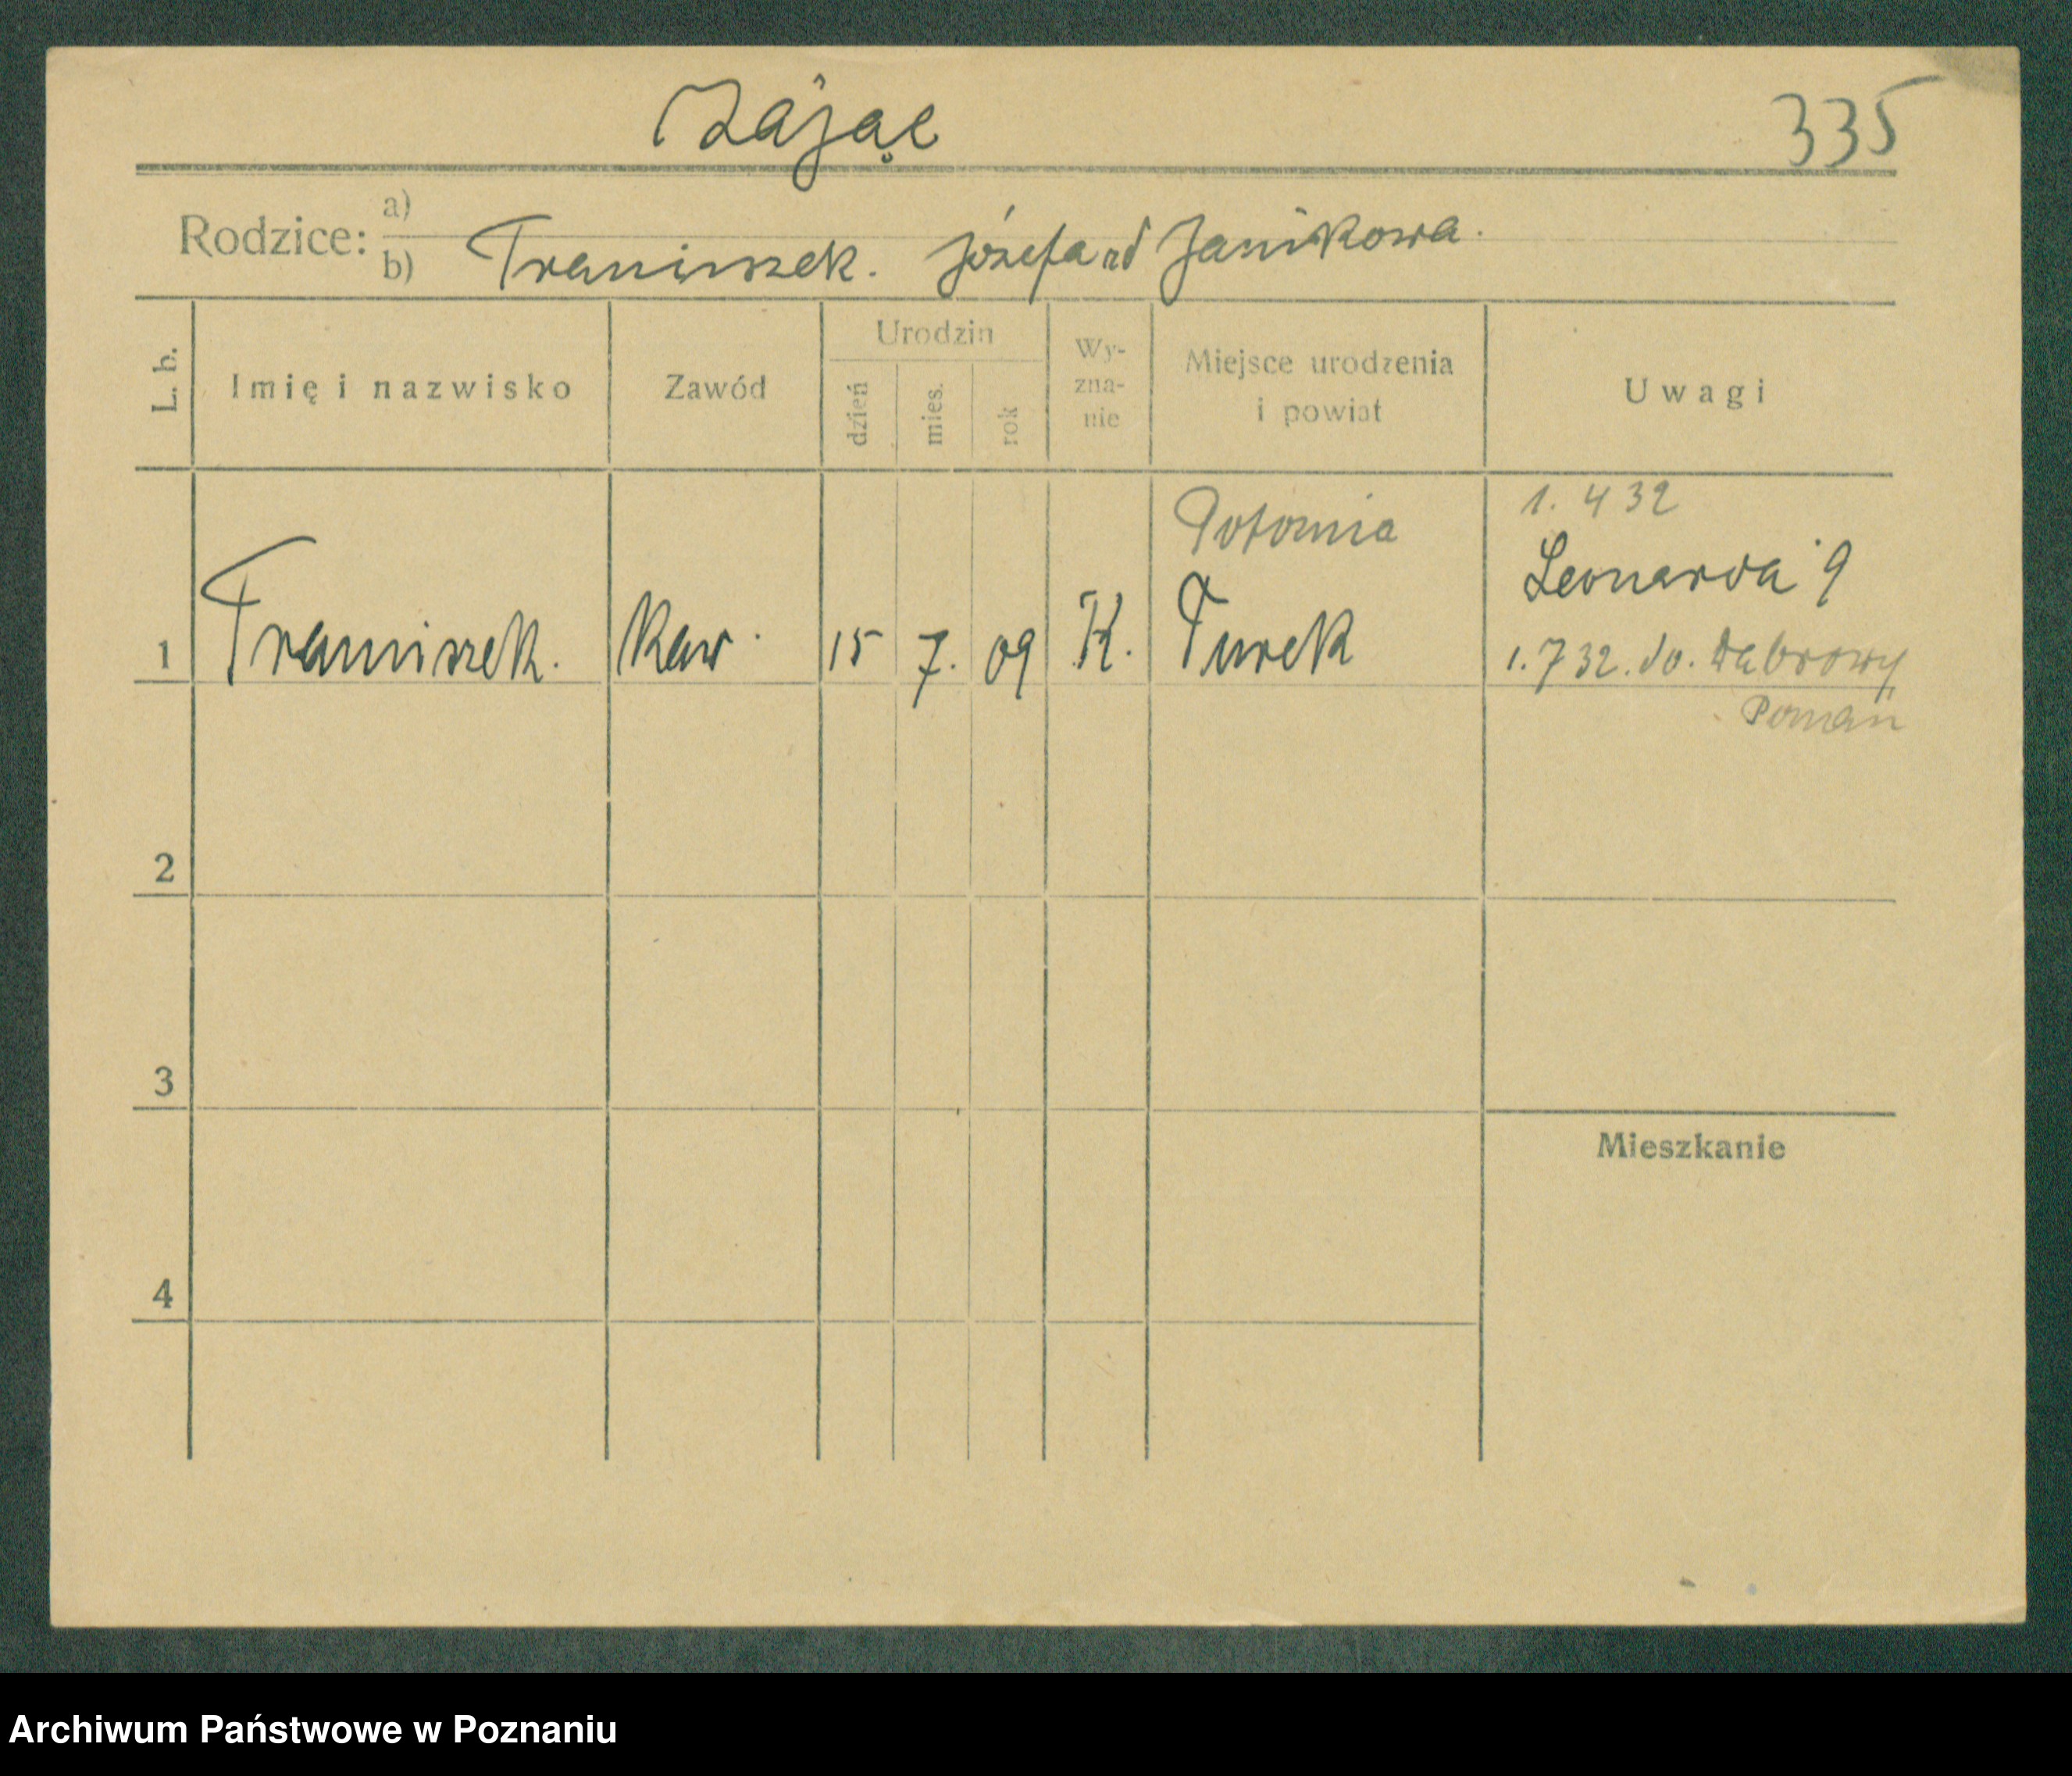 Zając 335
Rodzice: a)
b) Franciszek. Józefa Janikowa.
L. b. Imię i nazwisko Zawód Urodzin dzień mies. rok Wy-zna-nie Miejsce urodzenia i powiat Uwagi
Potoznia 1. 4 32
Leonarda 9
1 Franciszek. Kaw. 15 7. 09 K. Turek 1. 7 32. do. Dąbrowy
Poznań
2
3
Mieszkanie
4
Archiwum Państwowe w Poznaniu